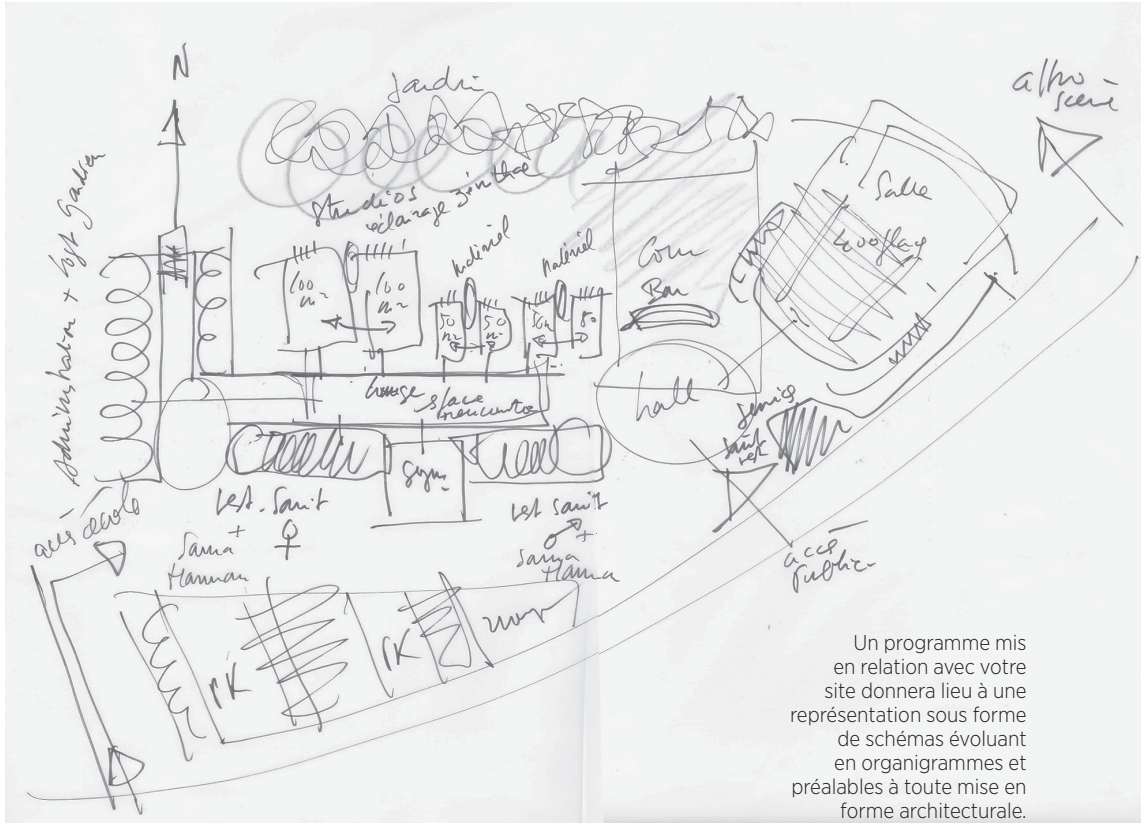 N
Jardin
accès
scène
Administration + logt gardien
Studios
éclairage zénithal
matériel
matériel
Salle
100
m²
100
m²
50
m²
50
m²
50
m²
50
Cour
Bar
hall
espace
rencontre
gym
service
sanit
vest
Vest. Sanit
+
♀
Sauna
Hamman
Vest Sanit
♂
+
Sauna
Hama
accès école
accès
Public
PK
PK
Un programme mis
en relation avec votre
site donnera lieu à une
représentation sous forme
de schémas évoluant
en organigrammes et
préalables à toute mise en
forme architecturale.